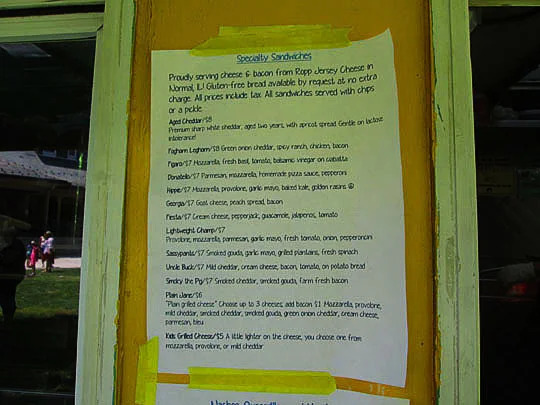 Specialty Sandwiches
Proudly serving cheese & bacon from Ropp Jersey Cheese in
Normal, IL! Gluten-free bread available by request at no extra
charge. All prices include tax. All sandwiches served with chips
or a pickle.
Aged Cheddar/$8
Premium sharp white cheddar, aged two years, with apricot spread. Gentle on lactose
intolerance!
Foghorn Leghorn/$8 Green onion cheddar, spicy ranch, chicken, bacon
Figaro/$7 Mozzarella, fresh basil, tomato, balsamic vinegar on ciabatta
Donatello/$7 Parmesan, mozzarella, homemade pizza sauce, pepperoni
Hippie/$7 Mozzarella, provolone, garlic mayo, baked kale, golden raisins
Georgia/$7 Goat cheese, peach spread, bacon
Fiesta/$7 Cream cheese, pepperjack, guacamole, jalapenos, tomato
Lightweight Champ/$7
Provolone, mozzarella, parmesan, garlic mayo, fresh tomato, onion, pepperoncini
Sassypants/$7 Smoked gouda, garlic mayo, grilled plantains, fresh spinach
Uncle Buck/$7 Mild cheddar, cream cheese, bacon, tomato, on potato bread
Smoky the Pig/$7 Smoked cheddar, smoked gouda, farm fresh bacon
Plain Jane/$6
"Plain grilled cheese" Choose up to 3 cheeses; add bacon $1. Mozzarella, provolone,
mild cheddar, smoked cheddar, smoked gouda, green onion cheddar, cream cheese,
parmesan, bleu
Kids Grilled Cheese/$5 A little lighter on the cheese, you choose one from
mozzarella, provolone, or mild cheddar